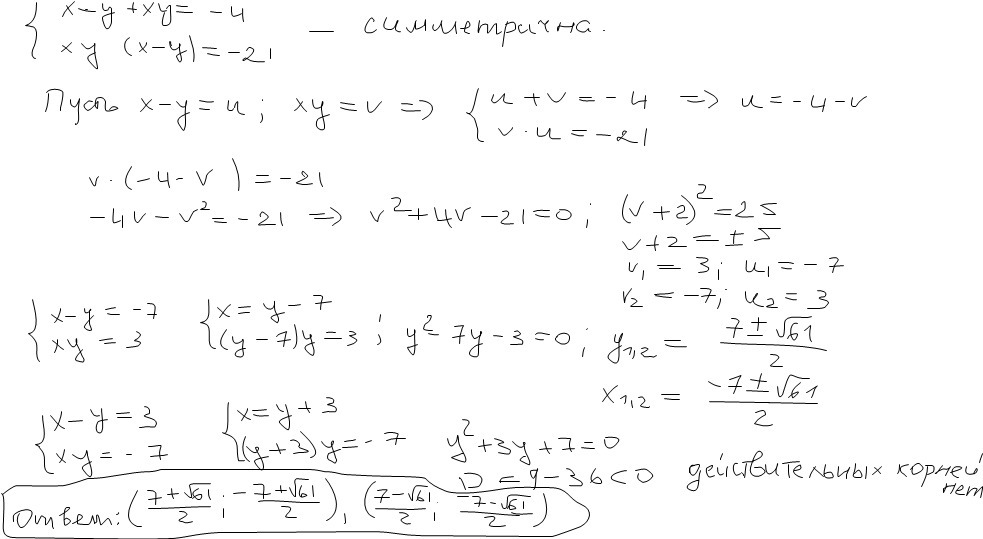 { x-y+xy = -4
{ xy (x-y) = -21 — симметрична.
Пусть x-y = u ; xy = v => { u + v = -4 => u = -4-v
{ v · u = -21
v · (-4 - v ) = -21
-4v - v² = -21 => v² + 4v - 21 = 0 ; (v + 2)² = 25
v + 2 = ± 5
v₁ = 3 ; u₁ = -7
v₂ = -7 ; u₂ = 3
{ x-y = -7 { x = y - 7
{ xy = 3 { (y-7)y = 3 ; y² - 7y - 3 = 0 ; y₁,₂ = (7 ± √61)/2
x₁,₂ = (-7 ± √61)/2
{ x-y = 3 { x = y + 3
{ xy = -7 { (y+3)y = -7 y² + 3y + 7 = 0
D = 9 - 36 < 0 действительных корней нет
Ответ: ((7+√61)/2 ; (-7+√61)/2), ((7-√61)/2 ; (-7-√61)/2)